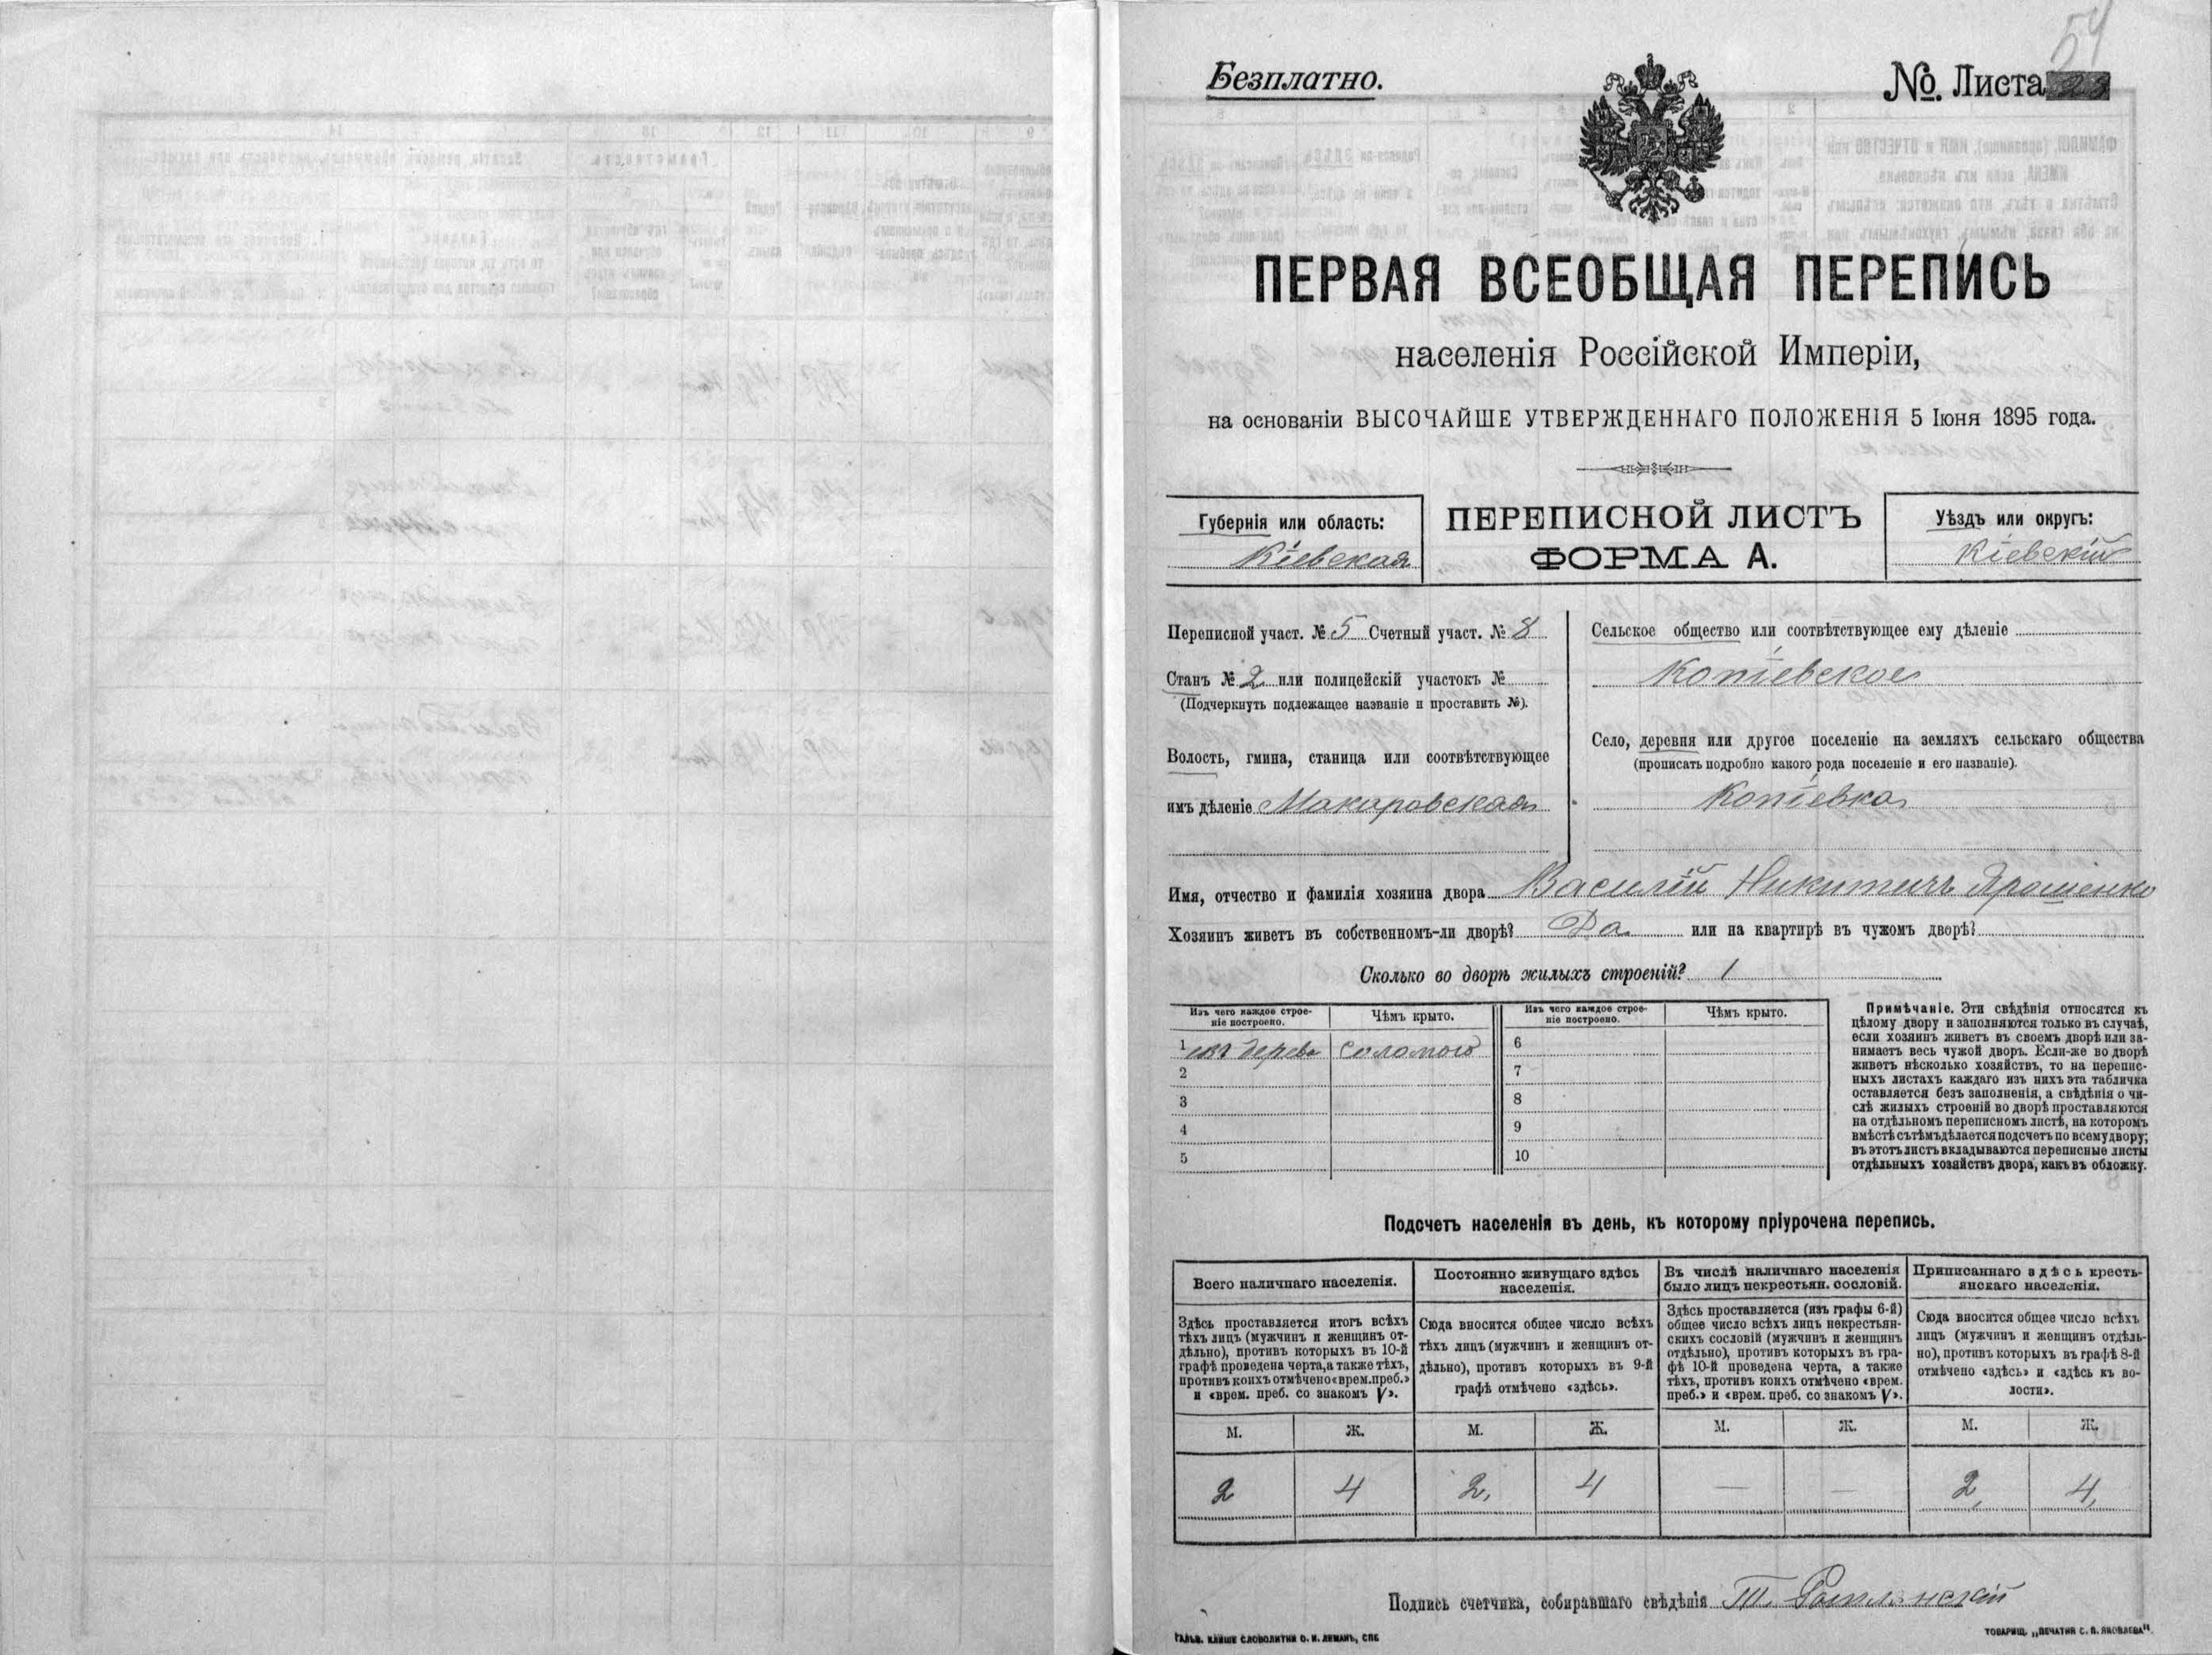 54
Безплатно.
№. Листа 23
ПЕРВАЯ ВСЕОБЩАЯ ПЕРЕПИСЬ
населенія Россійской Имперіи,
на основаніи ВЫСОЧАЙШЕ УТВЕРЖДЕННАГО ПОЛОЖЕНІЯ 5 Іюня 1895 года.
Губернія или область:
Кіевская
ПЕРЕПИСНОЙ ЛИСТЪ
ФОРМА А.
Уѣздъ или округъ:
Кіевскій
Переписной участ. № 5 Счетный участ. № 8
Станъ № 2 или полицейскій участокъ №
(Подчеркнуть подлежащее названіе и проставить №).
Волость, гмина, станица или соотвѣтствующее
имъ дѣленіе Макаровская
Сельское общество или соотвѣтствующее ему дѣленіе
Копіевское
Село, деревня или другое поселеніе на земляхъ сельскаго общества
(прописать подробно какого рода поселеніе и его названіе).
Копіевка
Имя, отчество и фамилія хозяина двора Василій Никитичъ Ярошенко
Хозяинъ живетъ въ собственномъ-ли дворѣ? Да или на квартирѣ въ чужомъ дворѣ?
Сколько во дворѣ жилыхъ строеній? 1
Изъ чего каждое строе-
ніе построено.
Чѣмъ крыто.
Изъ чего каждое строе-
ніе построено.
Чѣмъ крыто.
1 изъ дерева соломою
2
3
4
5
6
7
8
9
10
Примѣчаніе. Эти свѣдѣнія относятся къ
цѣлому двору и заполняются только въ случаѣ,
если хозяинъ живетъ въ своемъ дворѣ или за-
нимаетъ весь чужой дворъ. Если-же во дворѣ
живетъ нѣсколько хозяйствъ, то на перепис-
ныхъ листахъ каждаго изъ нихъ эта табличка
оставляется безъ заполненія, а свѣдѣнія о чи-
слѣ жилыхъ строеній во дворѣ проставляются
на отдѣльномъ переписномъ листѣ, на которомъ
вмѣстѣ съ тѣмъ дѣлается подсчетъ по всему двору;
въ этотъ листъ вкладываются переписные листы
отдѣльныхъ хозяйствъ двора, какъ въ обложку.
Подсчетъ населенія въ день, къ которому пріурочена перепись.
Всего наличнаго населенія.
Здѣсь проставляется итогъ всѣхъ
тѣхъ лицъ (мужчинъ и женщинъ от-
дѣльно), противъ которыхъ въ 10-й
графѣ проведена черта, а также тѣхъ,
противъ коихъ отмѣчено «врем. преб.»
и «врем. преб. со знакомъ V».
Постоянно живущаго здѣсь
населенія.
Сюда вносится общее число всѣхъ
тѣхъ лицъ (мужчинъ и женщинъ от-
дѣльно), противъ которыхъ въ 9-й
графѣ отмѣчено «здѣсь».
Въ числѣ наличнаго населенія
было лицъ некрестьян. сословій.
Здѣсь проставляется (изъ графы 6-й)
общее число всѣхъ лицъ некрестьян-
скихъ сословій (мужчинъ и женщинъ
отдѣльно), противъ которыхъ въ гра-
фѣ 10-й проведена черта, а также
тѣхъ, противъ коихъ отмѣчено «врем.
преб.» и «врем. преб. со знакомъ V».
Приписаннаго здѣсь кресть-
янскаго населенія.
Сюда вносится общее число всѣхъ
лицъ (мужчинъ и женщинъ отдѣль-
но), противъ которыхъ въ графѣ 8-й
отмѣчено «здѣсь» и «здѣсь къ во-
лости».
М. Ж. М. Ж. М. Ж. М. Ж.
2 4 2, 4 — — 2, 4,
Подпись счетчика, собиравшаго свѣдѣнія
ГАЛЬВ. КЛИШЕ СЛОВОЛИТНИ О. И. ЛЕМАНЪ, СПБ
ТОВАРИЩ. „ПЕЧАТНЯ С. П. ЯКОВЛЕВА".